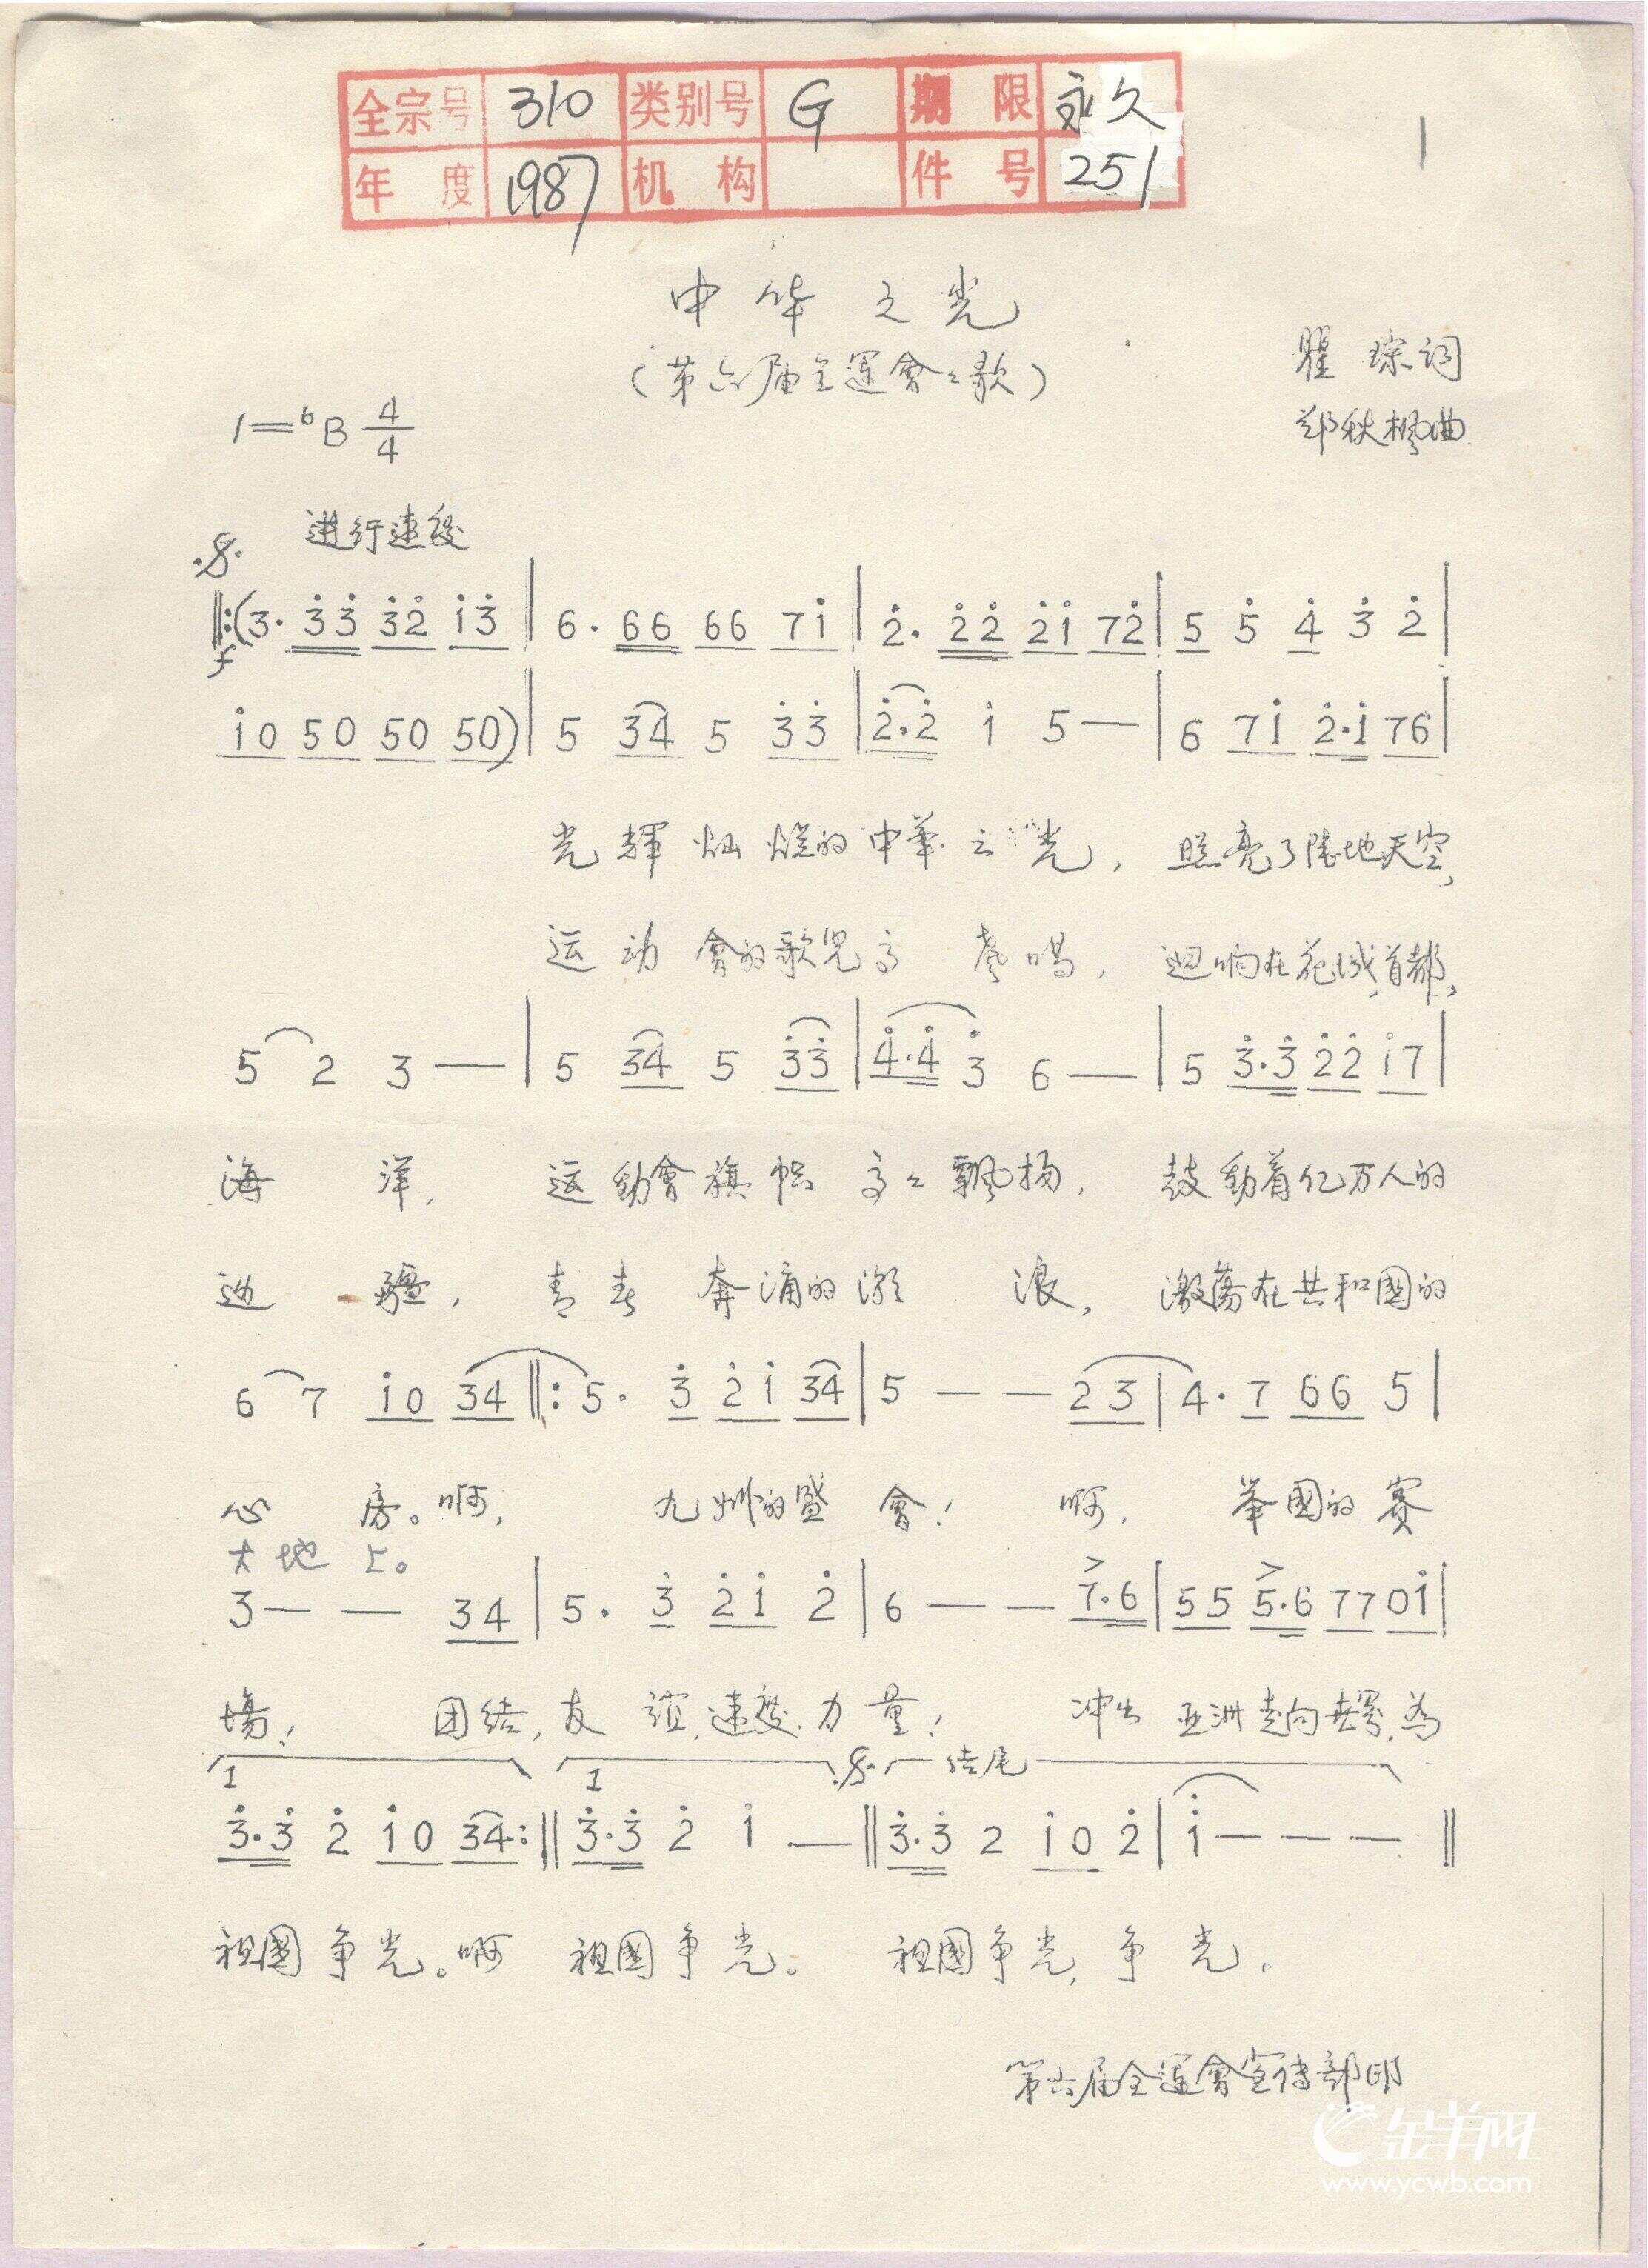 全宗号 310 类别号 G 期限 永久
年度 1987 机构 件号 251
1
中华之光
(第六届全運會之歌)
瞿琮词
1=♭B 4/4
郑秋枫曲
进行速度
𝄋
‖:(3· 3̇3̇ 3̇2̇ 1̇3̇ | 6· 66 66 71̇ | 2̇· 2̇2̇ 2̇1̇ 72̇ | 5 5̇ 4̇ 3̇ 2̇ |
f
1̇0 50 50 50) | 5 34 5 3̇3̇ | 2̇·2̇ 1̇ 5 — | 6 71̇ 2̇·1̇ 76 |
光輝灿烂的中華之光, 照亮了陆地天空,
运动會的歌児高奏唱, 迴响在花城,首都,
5 2 3 — | 5 34 5 3̇3̇ | 4̇·4̇ 3̇ 6 — | 5 3̇·3̇ 2̇2̇ 1̇7 |
海洋, 运動會旗帜高々飘扬, 鼓動着亿万人的
边疆, 青春奔涌的激浪, 激荡在共和國的
6 7 1̇0 34 ‖: 5· 3̇ 2̇1̇ 34 | 5 — — 23 | 4· 7 66 5 |
心房。啊, 九州的盛會! 啊, 举國的赛
大地上。
3 — — 34 | 5· 3̇ 2̇1̇ 2̇ | 6 — — 7·6 | 55 5·6 77 01̇ |
場! 团结,友谊,速度,力量! 冲出亚洲走向世界,为
1 1 𝄋 结尾
3̇·3̇ 2̇ 1̇0 34 :‖ 3̇·3̇ 2̇ 1̇ — ‖ 3̇·3̇ 2 1̇0 2̇ | 1̇ — — — ‖
祖國争光。啊 祖國争光。 祖國争光,争光。
第六届全運會宣传部印
金羊网
www.ycwb.com